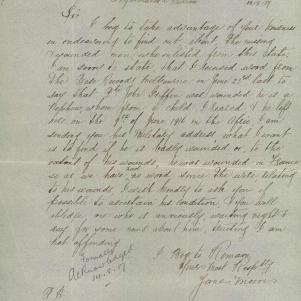 18.8.17
Sir
I beg to take advantage of your kindness
in endeavouring to find out about the missing
& wounded men who enlisted from this State,
I am sorry to state that I received word from
The Base Records Melbourne on July 23rd last to
say that Pte John Giffin was wounded he is a
Nephew whom from a child I reared & he left
here on the 9th of June 1916 in the I am
sending you his Military address what I want
is to find if he is badly wounded or, to the
extent of his wounds, he was wounded in France
so as we have had no word since the wire relating
to his wounds, I wish kindly to ask you if
possible to ascertain his condition & you will
oblige one who is anxiously waiting night &
day for some news about him, trusting I am
not offending
I Beg to Remain
Yours Most Respectfully
Jane Morris
Formally
Acknowledged
14.8.17